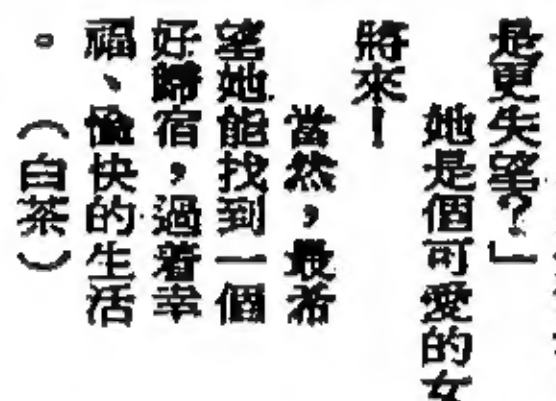 是更失望？」
她是個可愛的女
將來！
當然，最希
望她能找到一個
好歸宿，過着幸
福、愉快的生活
。（白茶）